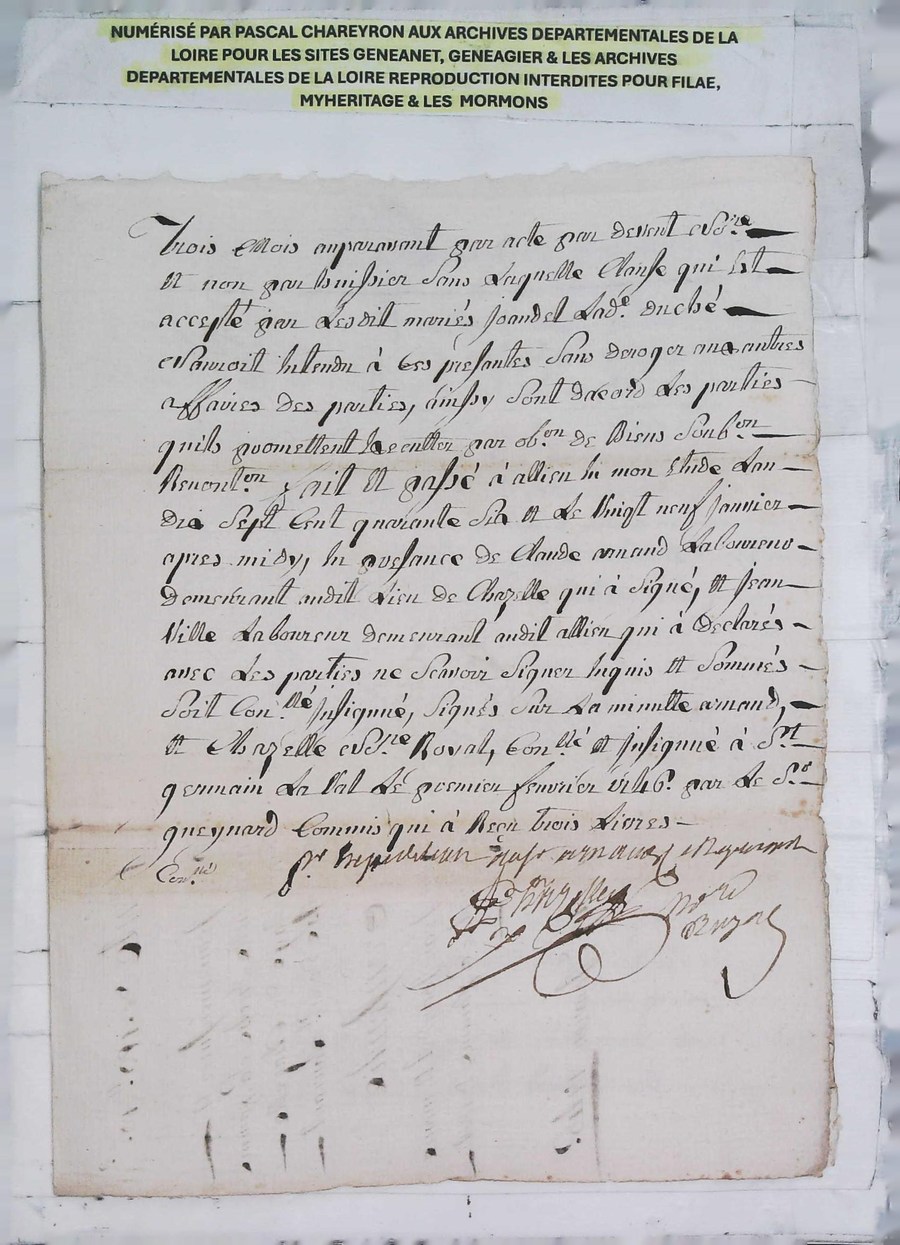 NUMÉRISÉ PAR PASCAL CHAREYRON AUX ARCHIVES DEPARTEMENTALES DE LA
LOIRE POUR LES SITES GENEANET, GENEAGIER & LES ARCHIVES
DEPARTEMENTALES DE LA LOIRE REPRODUCTION INTERDITES POUR FILAE,
MYHERITAGE & LES MORMONS
trois mois auparavant par acte par devent No.re
et non par huissier sans Laquelle Clause qui Est
accepté par Lesdit mariés Joandel Lad.e duché
N'auroit Intendu à Ces présantes sans deroger aux autres
affaires des parties, ainsy sont dacord Les parties
quils promettent Executter par ob.on de Biens soub.on
Renont.on fait Et passé à allieu In mon Etude Lan
Sept Cent quarante six et Le Vingt neuf janvier
apres midy, In presance de Claude arnaud Laboureur
demeurant audit Lieu de Chazelle qui à signé, et Jean
Ville Laboureur demeurant audit allieu qui à declarés
avec Les parties ne scavoir signer Inquis et sommés
soit Con.llé Insignué, signés sur La minutte arnaud,
et Chazelle No.re Royal, Con.llé et Insignué à S.t
germain La Val Le premier fevrier 1746. par Le S.r
queynard Commis qui à Reçu trois Livres
p.r Expedition